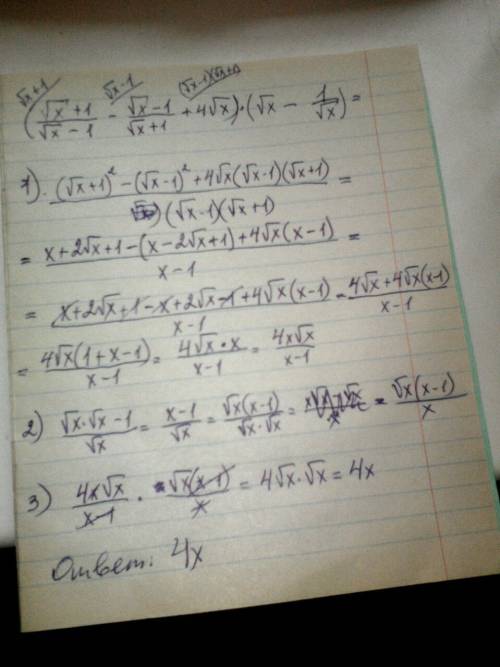 √x+1 √x-1 (√x-1)(√x+1)
((√x+1)/(√x-1) - (√x-1)/(√x+1) + 4√x)·(√x - 1/√x) =
1). ((√x+1)² - (√x-1)² + 4√x(√x-1)(√x+1))/((√x-1)(√x+1)) =
= (x+2√x+1-(x-2√x+1)+4√x(x-1))/(x-1) =
= (x+2√x+1-x+2√x-1+4√x(x-1))/(x-1) = (4√x+4√x(x-1))/(x-1)
= (4√x(1+x-1))/(x-1) = (4√x·x)/(x-1) = (4x√x)/(x-1)
2) (√x·√x-1)/√x = (x-1)/√x = (√x(x-1))/(√x·√x) = = (√x(x-1))/x
3) (4x√x)/(x-1) · (√x(x-1))/x = 4√x·√x = 4x
Ответ: 4x